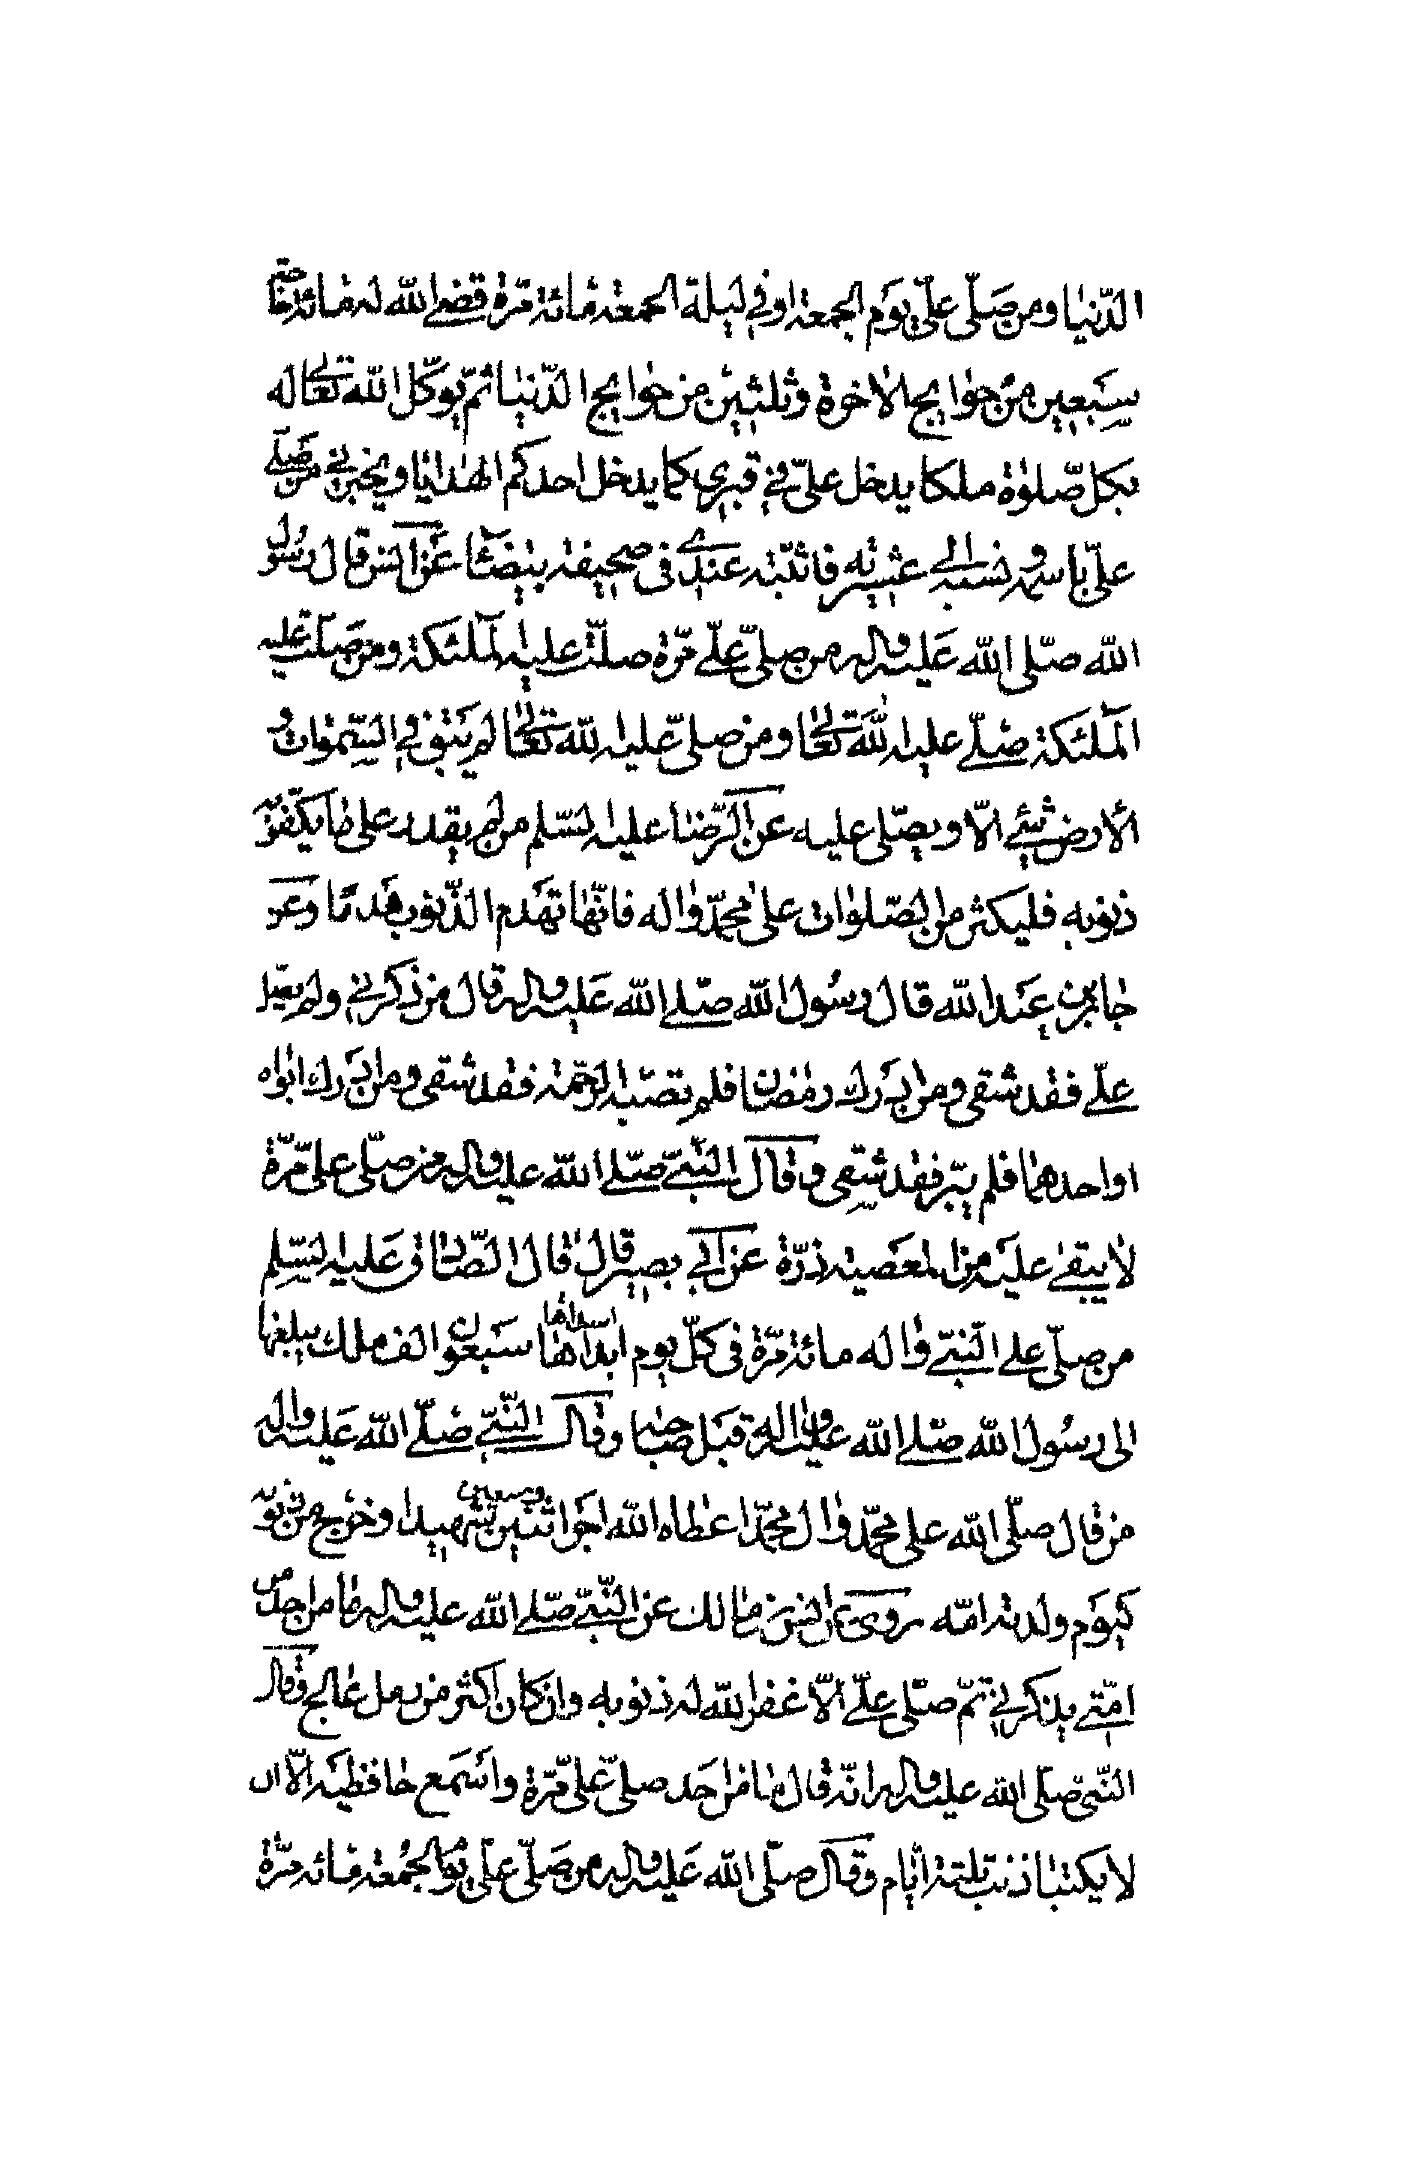 الدّنيا ومن صَلّى علّي يوَم الجمعة اوفي ليلة الجمعة مائة مّرة قضى الله له مائة حاجة
سَبعين من حوايج الاخرة وثلثين من حوايج الدّنيا ثمّ يوكّل الله تعالى له
بكلّ صّلوة ملكا يدخل علىّ في قبري كما يدخل احدكم الهدايا ويخبرني من صلى
علىّ باسمه ونسبه الى عشيرته فاثبته عندي فى صحيفة بيضآء عن انس قال رسول
الله صّلى الله عَليه واله من صلىّ علّي مّرة صلّت عليه الملئكة ومن صَلّت عليه
الملئكة صَلّى عليه الله تعالى ومن صلىّ عليه الله تعالى لم يَبق في السّموات و
الأرض شيئ الاّ ويصّلى عليه عن الرّضا عليه السّلم من لم يقدر على ما يكفّر به
ذنوبه فليكثر من الصّلوات على محمّد واله فانّها تهَدم الذّنوب هَدمًا وعن
جابر بن عَبد الله قال رسُول الله صّلى الله عَليه واله قال من ذكرني ولم يصّل
علّى فقد شقى ومن ادرك رمضان فلم تصبه الرّحمة فقد شقى ومن ادرك ابواه
او احدهما فلم يبّر فقد شقى وقال النّبىّ صّلى الله عليه واله من صلّى علىّ مّرة
لا يبقى عليَه من المعَصية ذرّة عن ابي بصير قال قال الصّادق عَليه السّلم
من صلّى على النّبىّ واله مائة مّرة فى كلّ يوم ابداها سَبعون الف ملك يبلغها
الى رسُول الله صّلى الله عليه واله قبَل صاحبه وقال النّبىّ صَلّى الله عَليه واله
من قال صلّى الله على محمّد وال محمّد اعطاه الله اجر اثنين وسبعين شهيدا وخرج من ذنوبه
كيوَم ولدته امّه روى عن انس بن مالك عن النّبىّ صّلى الله عليه واله ما من احد من
امّتى يذكرني ثمّ صلّى علّى الاّ غفر الله له ذنوبه وان كان اكثر من رمل عالج وقال
النّبىّ صلّى الله عليه واله انّه قال ما من احَد صلىّ علىّ مّرة واسَمع حافظيَه الاّ ان
لا يكتبا ذنبه ثلثة ايّام وقال صلّى الله عَليه واله من صَلّى علّي يوم الجمُعة مائة مّرة